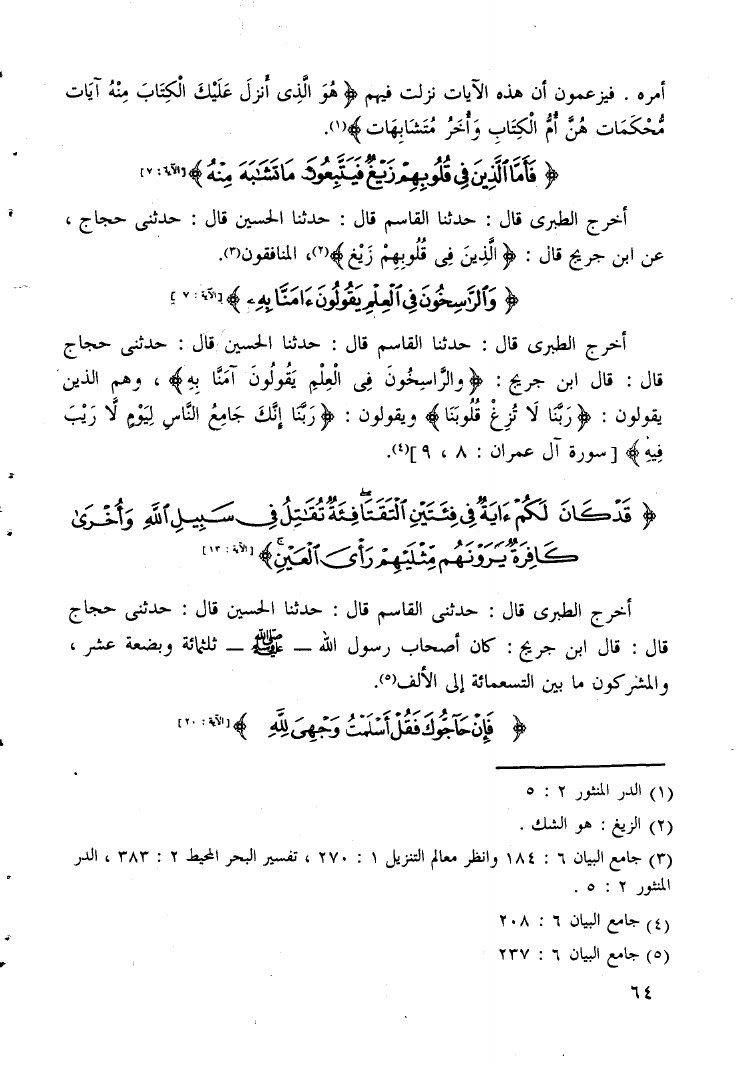 أمره . فيزعمون أن هذه الآيات نزلت فيهم ﴿ هُوَ الَّذِى أَنزلَ عَلَيْكَ الْكِتَابَ مِنْهُ آيَات
مُّحْكَمَات هُنَّ أُمُّ الْكِتَابِ وَأُخَرُ مُتَشَابِهَات ﴾(١).
﴿ فَأَمَّا ٱلَّذِينَ فِى قُلُوبِهِمْ زَيْغٌ فَيَتَّبِعُونَ مَا تَشَٰبَهَ مِنْهُ ﴾ [الآية : ٧]
أخرج الطبرى قال : حدثنا القاسم قال : حدثنا الحسين قال : حدثنى حجاج ،
عن ابن جريج قال : ﴿ الَّذِينَ فِى قُلُوبِهِمْ زَيْغ ﴾(٢)، المنافقون(٣).
﴿ وَٱلرَّٰسِخُونَ فِى ٱلْعِلْمِ يَقُولُونَ ءَامَنَّا بِهِۦ ﴾ [الآية : ٧]
أخرج الطبرى قال : حدثنا القاسم قال : حدثنا الحسين قال : حدثنى حجاج
قال : قال ابن جريج : ﴿ والرَّاسِخُونَ فِى الْعِلْمِ يَقُولُونَ آمَنَّا بِهِ ﴾ ، وهم الذين
يقولون : ﴿ رَبَّنَا لَا تُزِغْ قُلُوبَنَا ﴾ ويقولون : ﴿ رَبَّنَا إِنَّكَ جَامِعُ النَّاسِ لِيَوْمٍ لَّا رَيْبَ
فِيهِ ﴾ [ سورة آل عمران : ٨ ، ٩ ](٤).
﴿ قَدْ كَانَ لَكُمْ ءَايَةٌ فِى فِئَتَيْنِ ٱلْتَقَتَا ۖ فِئَةٌ تُقَٰتِلُ فِى سَبِيلِ ٱللَّهِ وَأُخْرَىٰ
كَافِرَةٌ يَرَوْنَهُم مِّثْلَيْهِمْ رَأْىَ ٱلْعَيْنِ ۚ ﴾ [الآية : ١٣]
أخرج الطبرى قال : حدثنى القاسم قال : حدثنا الحسين قال : حدثنى حجاج
قال : قال ابن جريج : كان أصحاب رسول الله ــ ﷺ ــ ثلثمائة وبضعة عشر ،
والمشركون ما بين التسعمائة إلى الألف(٥).
﴿ فَإِنْ حَآجُّوكَ فَقُلْ أَسْلَمْتُ وَجْهِىَ لِلَّهِ ﴾ [الآية : ٢٠]
(١) الدر المنثور ٢ : ٥
(٢) الزيغ : هو الشك .
(٣) جامع البيان ٦ : ١٨٤ وانظر معالم التنزيل ١ : ٢٧٠ ، تفسير البحر المحيط ٢ : ٣٨٣ ، الدر
المنثور ٢ : ٥ .
(٤) جامع البيان ٦ : ٢٠٨
(٥) جامع البيان ٦ : ٢٣٧
٦٤